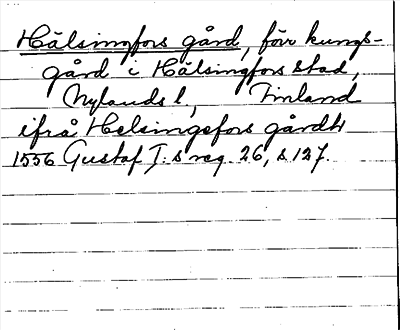 Hälsingfors gård, förr kungs-
gård i Hälsingfors stad,
Nylands l., Finland
ifrå Helsingefors gårdh
1556 Gustaf I:s reg. 26, s 127.